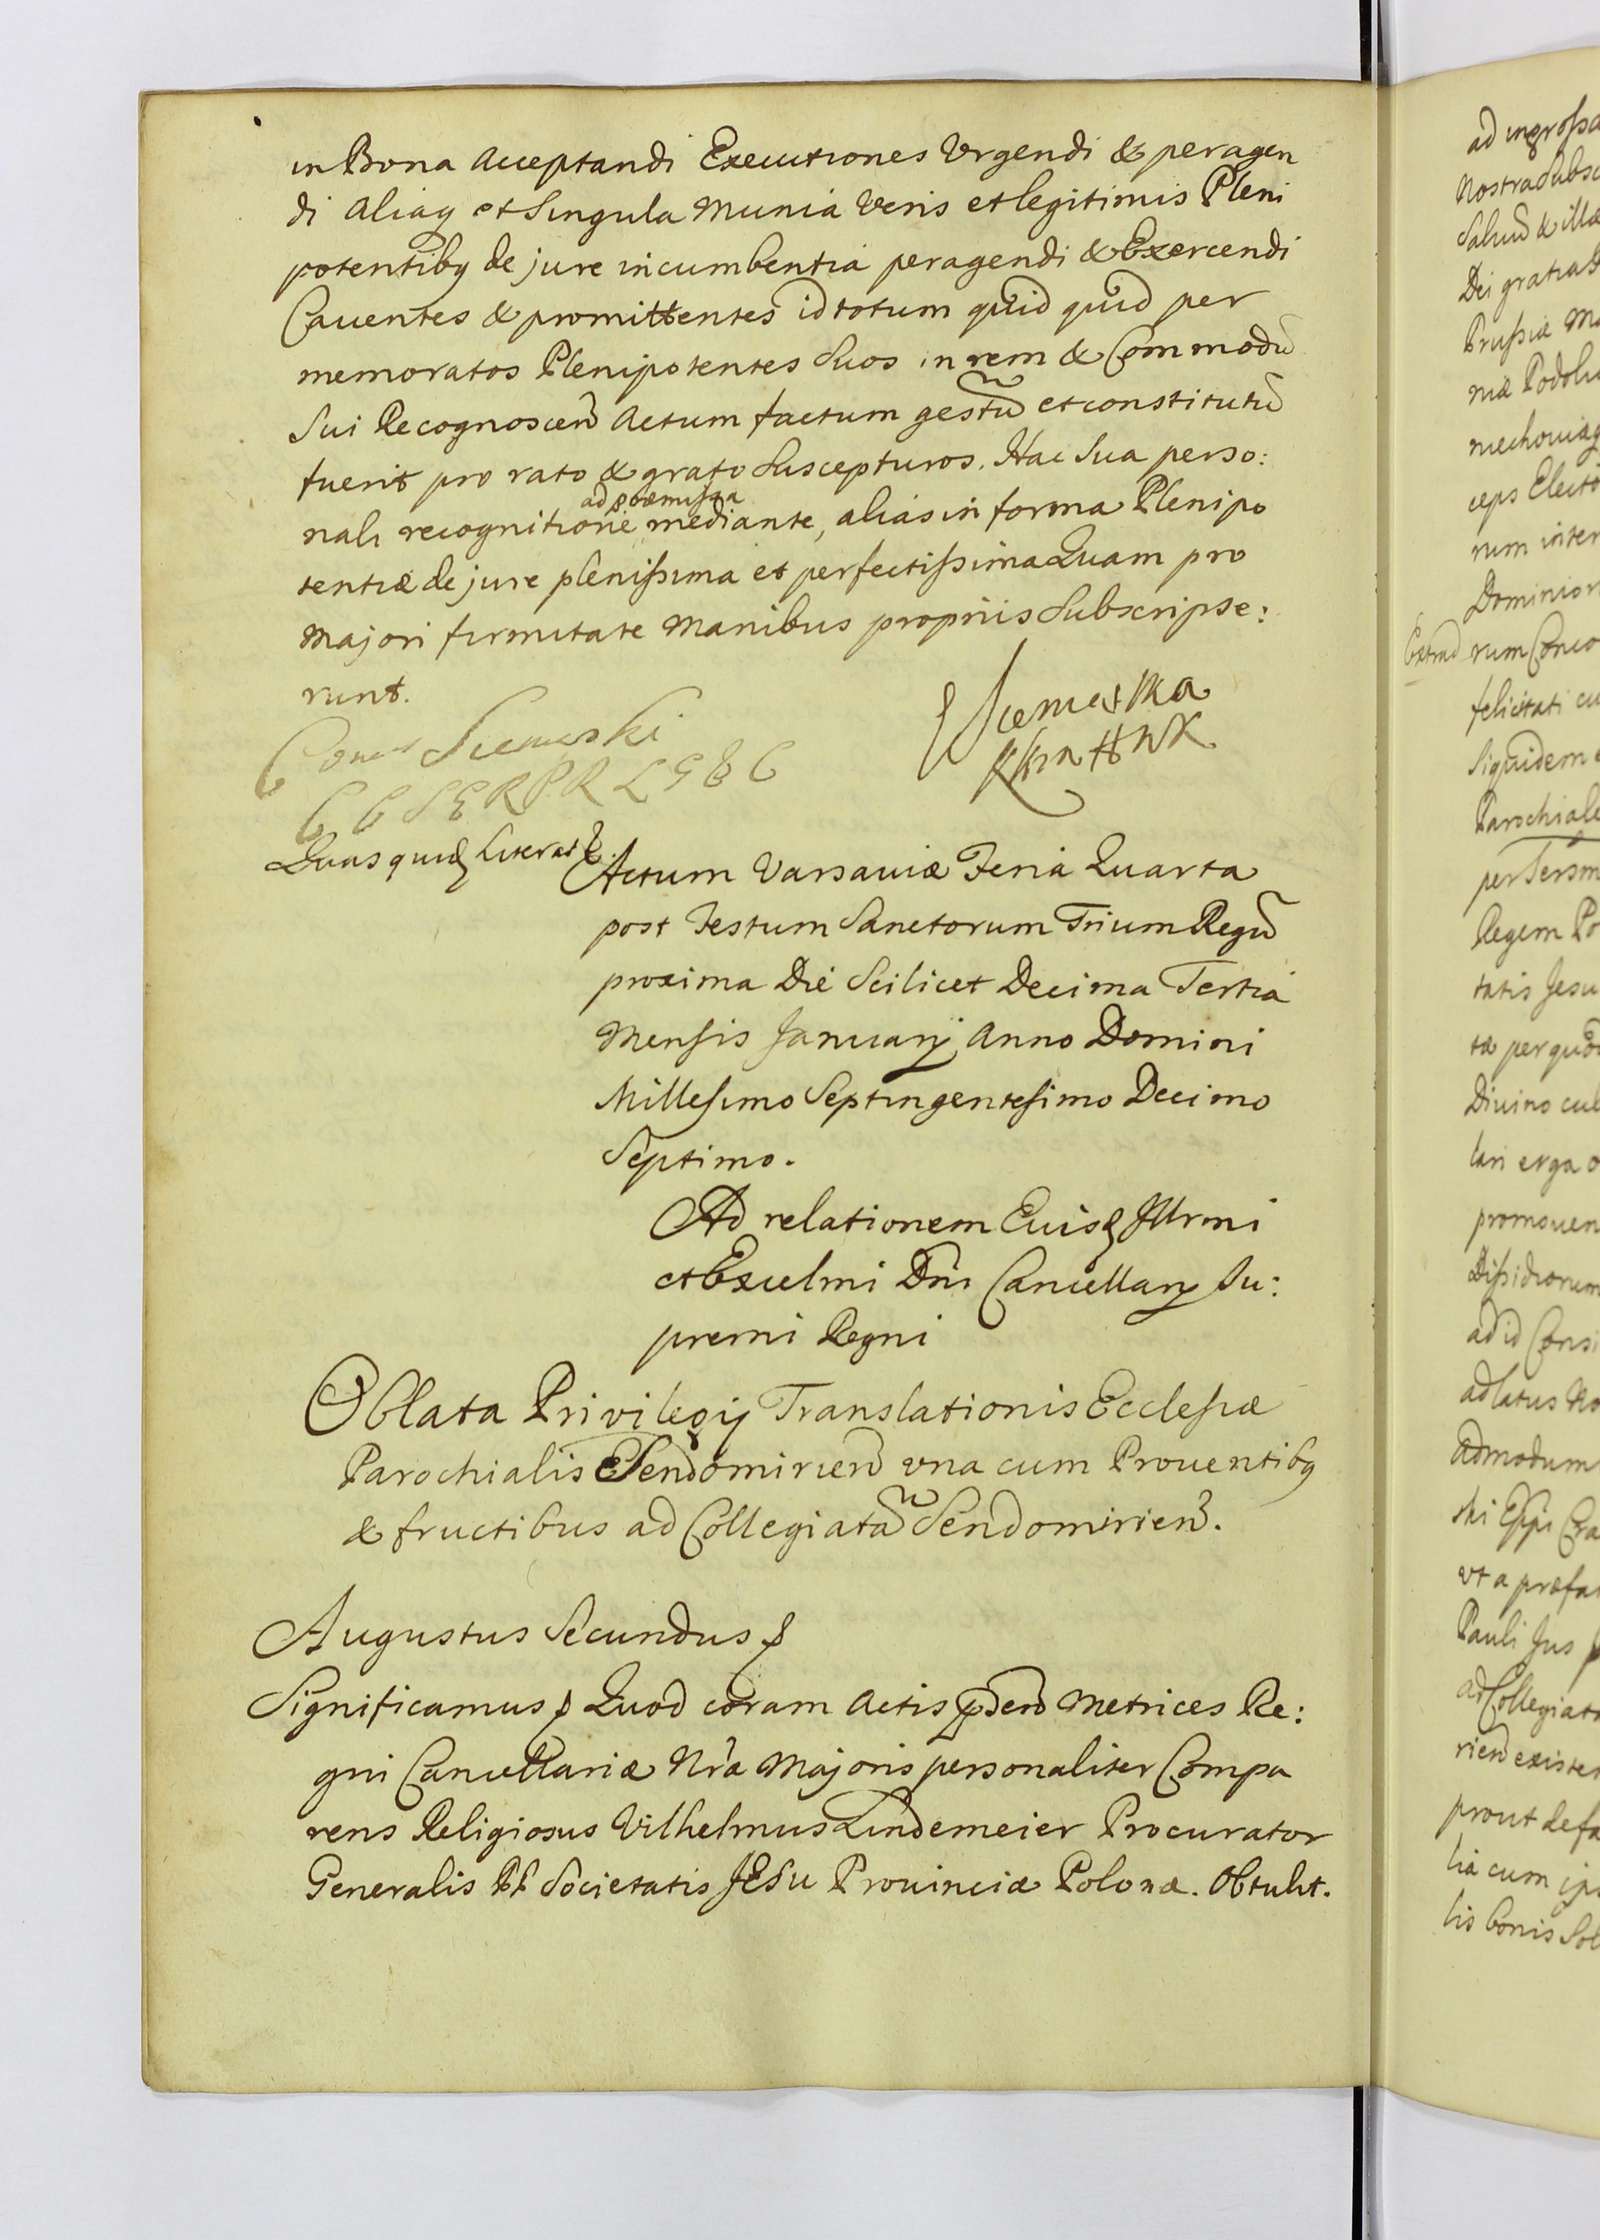 in Bona Acceptandi Executiones Urgendi & peragen
di aliaq et Singula Munia Veris et legitimis Pleni
potentibq de jure incumbentia peragendi & Exercendi
Cauentes & promittentes id totum quid quid per
memoratos Plenipotentes Suos in rem & Commodu
Sui Recognoscen Actum factum gestu et constitutu
fuerit pro rato & grato Suscepturos. Hac Sua perso:
ad præmissa
nali recognitione mediante, alias in forma Plenipo
tentiæ de jure plenissima et perfectissima Quam pro
Majori firmitate Manibus proprijs Subscripse:
runt.
Sieniawski
Actum Varsauiæ Feria Quarta
post Festum Sanctorum Trium Regu
proxima Die Scilicet Decima Tertia
Mensis Januarij Anno Domini
Millesimo Septingentesimo Decimo
Septimo.
Quas quid Literas
Ad relationem Euisd Illrmi
et Excelmi Dni Cancellarij Su:
premi Regni
Oblata Privilegij Translationis Ecclesiæ
Parochialis Sendomirien una cum Prouentibq
& fructibus ad Collegiata Sendomirien.
Augustus Secundus
Significamus Quod coram Actis pnden Metrices Re:
gni Cancellariæ Nræ Majoris personaliter Compa
rens Religiosus Vilhelmus Lindemeier Procurator
Generalis PP Societatis JEsu Prouinciæ Polonæ. Obtulit.
ad ingrossa
Nostra Subsc
Salund & illæ
Dei gratia
Prussiæ Ma
niæ Podolu
niechouiæq
ceps Electo
num inter
Dominior
Extrad rum Conco
felicitati cu
Siquidem
Parochiale
per Seresm
Regem Po
tatis Jesu
tæ per quod
Diuino cul
lari erga o
promouen
Dissidiorum
ad id Consi
ad latus No
admodum
ski Eppi Cra
ut a præfat
Pauli Jus
ad Collegiat
rien existen
prout defa
lia cum ips
lis bonis Sol